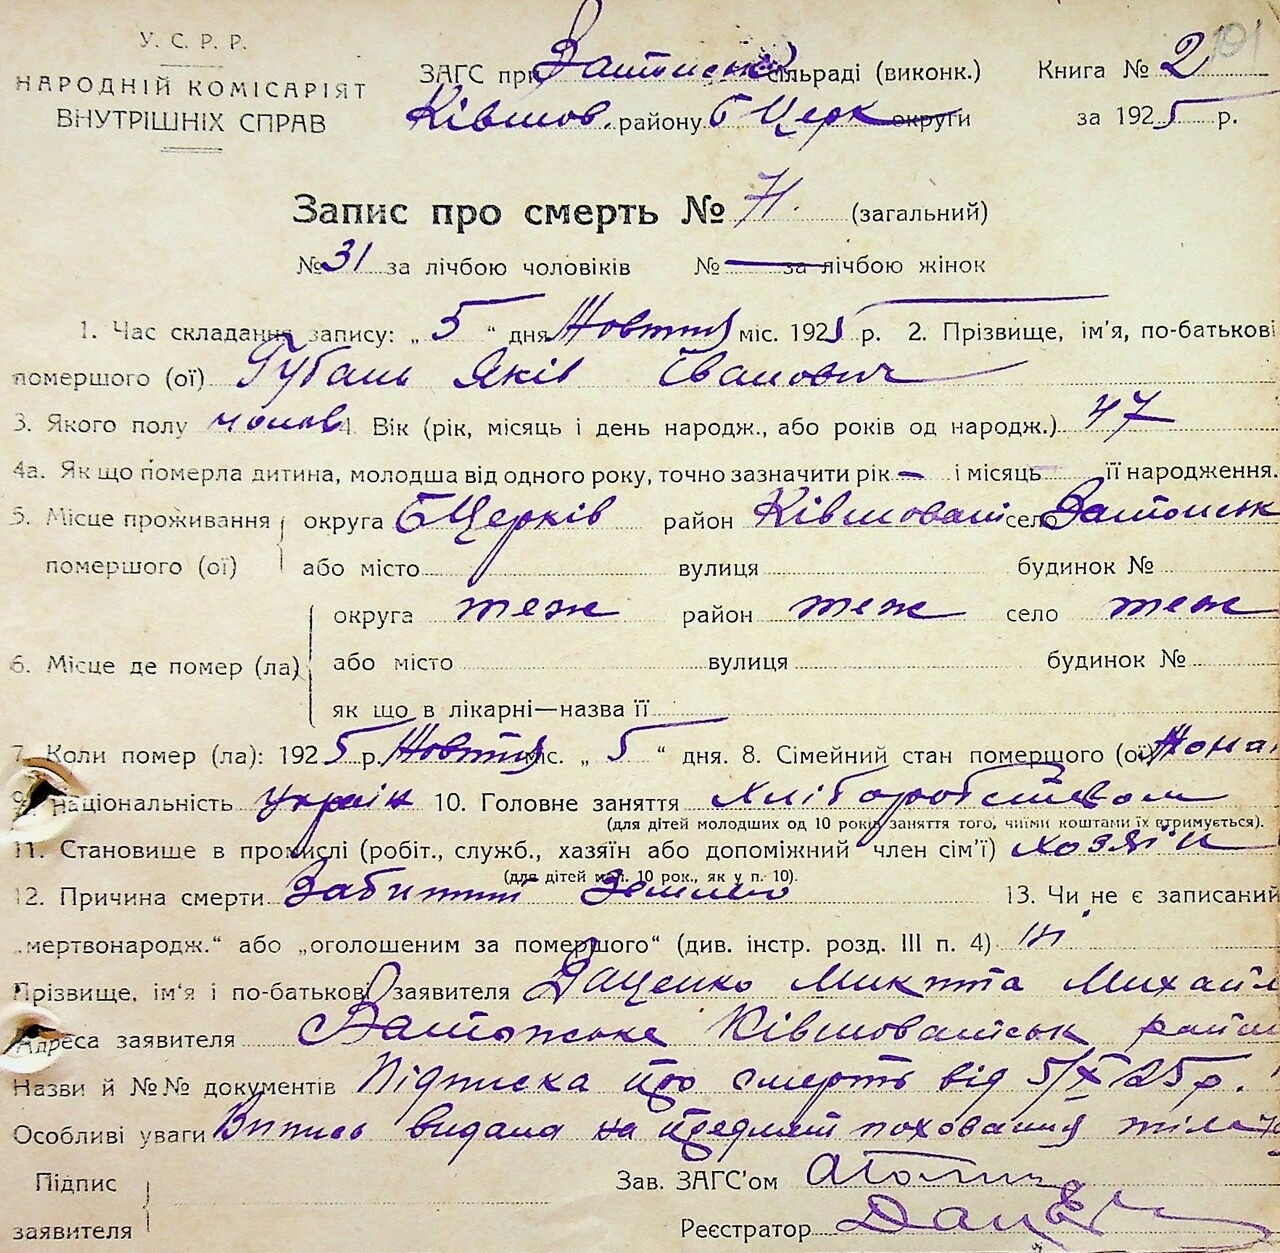 У. С. Р. Р.
НАРОДНІЙ КОМІСАРІЯТ
ВНУТРІШНІХ СПРАВ
ЗАГС при сільраді (виконк.)
Ківшов. району Б Церк округи
Книга № 2 101
за 1925 р.
Запис про смерть № 71. (загальний)
№ 31 за лічбою чоловіків № — за лічбою жінок
1. Час складання запису: „ 5 “ дня Жовтня міс. 1925 р. 2. Прізвище, ім’я, по-батькові
помершого (ої) Губань Яків Іванович
3. Якого полу чолов 4 Вік (рік, місяць і день народж., або років од народж.) 47
4а. Як що померла дитина, молодша від одного року, точно зазначити рік — і місяць — її народження.
5. Місце проживання округа БЦерків район Ківшоват село
помершого (ої) або місто вулиця будинок №
округа теж район теж село теж
6. Місце де помер (ла) або місто вулиця будинок №
як що в лікарні—назва її
7. Коли помер (ла): 1925 р. Жовтня міс. „ 5 “ дня. 8. Сімейний стан помершого (ої)
9. Національність україн 10. Головне заняття хліборобством
(для дітей молодших од 10 років заняття того, чиїми коштами їх втримується).
11. Становище в промислі (робіт., служб., хазяїн або допоміжний член сім’ї) хозяїн
(для дітей мол. 10 рок., як у п. 10).
12. Причина смерти Забиттї Землею 13. Чи не є записаний
„мертвонародж.“ або „оголошеним за помершого“ (див. інстр. розд. III п. 4) ні
Прізвище, ім’я і по-батькові заявителя Даценко Микита Михайл
Адреса заявителя Ківшоватськ район
Назви й №№ документів Підписка про смерть від 5/X 25 р.
Особливі уваги Випись видана на предмет поховання тіла
Підпис Зав. ЗАГС’ом
заявителя Реєстратор